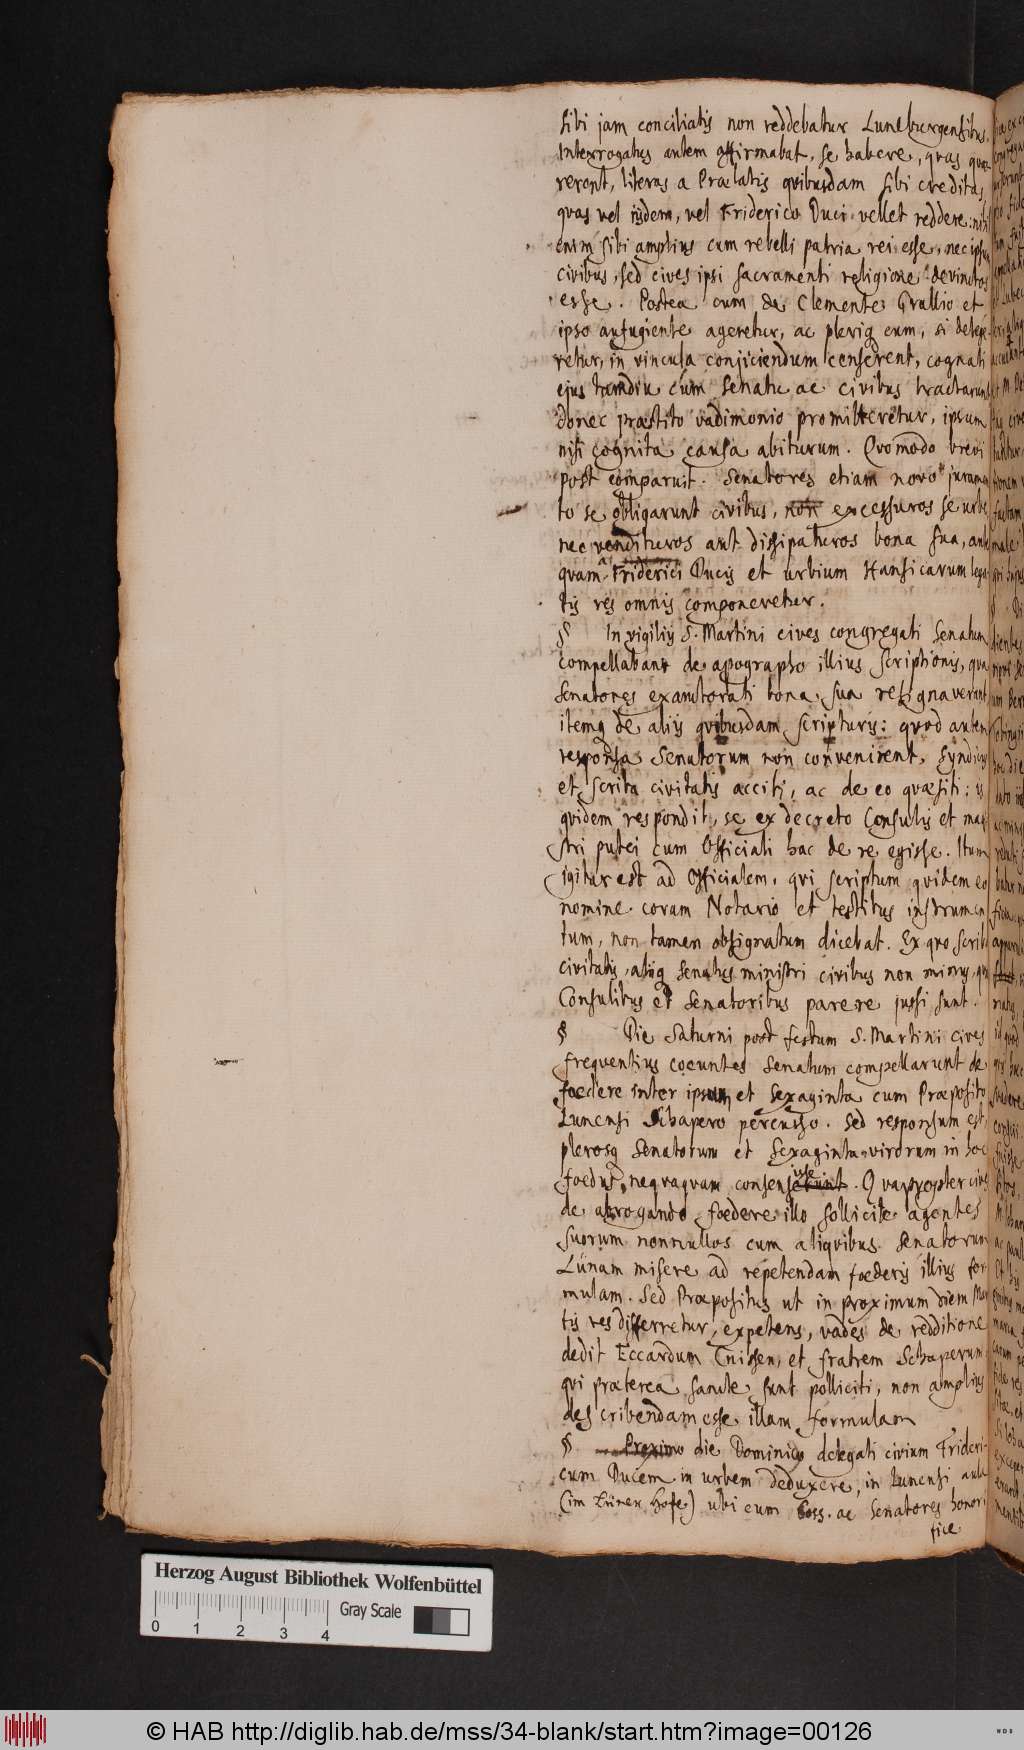 sibi jam conciliatis non reddebatur Luneburgensibus.
Interrogatus autem affirmabat, se habere, quas quæ
rerent, literas a Prælatis quibusdam sibi creditas,
quas vel iisdem, vel Friderico Duci vellet reddere: nihil
enim sibi amplius cum rebelli patria rei esse, nec ipsum
civibus, sed cives ipsi sacramenti religione devinctos
esse. Postea cum de Clemente Grullio et
ipso aufugiente ageretur, ac pleriq eum, si detege
retur, in vincula conjiciendum censerent, cognati
ejus tamdiu cum Senatu ac civibus tractarunt
donec præstito vadimonio promitteretur, ipsum
nisi cognita causa abiturum. Qvomodo brevi
post comparuit. Senatores etiam novo juramen
to se obligarunt civibus, non excessuros se urbe
nec vendituros aut dissipaturos bona sua, ante
quam a Friderici Ducis et urbium Hansicarum lega
tis res omnis componeretur.
§ In vigiliis S. Martini cives congregati Senatum
compellabant de apographo illius scriptionis, qua
Senatores exauctorati bona sua resignaverant
itemq de aliis quibusdam scripturis: quod autem
responsa Senatorum non convenirent, Syndicus
et scriba civitatis acciti, ac de eo quæsiti: is
quidem respondit, se ex decreto Consulis et magi
stri putei cum Officiali hac de re egisse. Itum
igitur est ad Officialem, qui scriptum quidem eo
nomine coram Notario et testibus instrumen
tum, non tamen obsignatum dicebat. Ex quo scriba
civitatis, aliiq Senatus ministri civibus non minus, qm
Consulibus et Senatoribus parere jussi sunt.
§ Die Saturni post festum S. Martini cives
frequentius coeuntes Senatum compellarunt de
foedere inter ipsum et Sexaginta cum Præposito
Lunensi Schapero percusso. Sed responsum est,
plerosq Senatorum et Sexaginta virorum in hoc
foedus neqvaqvam consensisse. Qvapropter cives
de abrogando foedere illo sollicite agentes
suorum nonnullos cum aliqvibus Senatorum
Lünam misere ad repetendam foederis illius for
mulam. Sed Præpositus ut in proximum diem Mar
tis res differretur, expetens, vades de redditione
dedit Eccardum Tnissen, et fratrem Schaperum,
qui præterea sancte sunt polliciti, non amplius
describendam esse illam formulam
§ Proximo die Dominico delegati civium Frideri-
cum Ducem in urbem deduxere, in Lunensi aula
(im Lünen Hofe) ubi eum Coss. ac Senatores honori
fice
Herzog August Bibliothek Wolfenbüttel
Gray Scale
0 1 2 3 4
© HAB http://diglib.hab.de/mss/34-blank/start.htm?image=00126